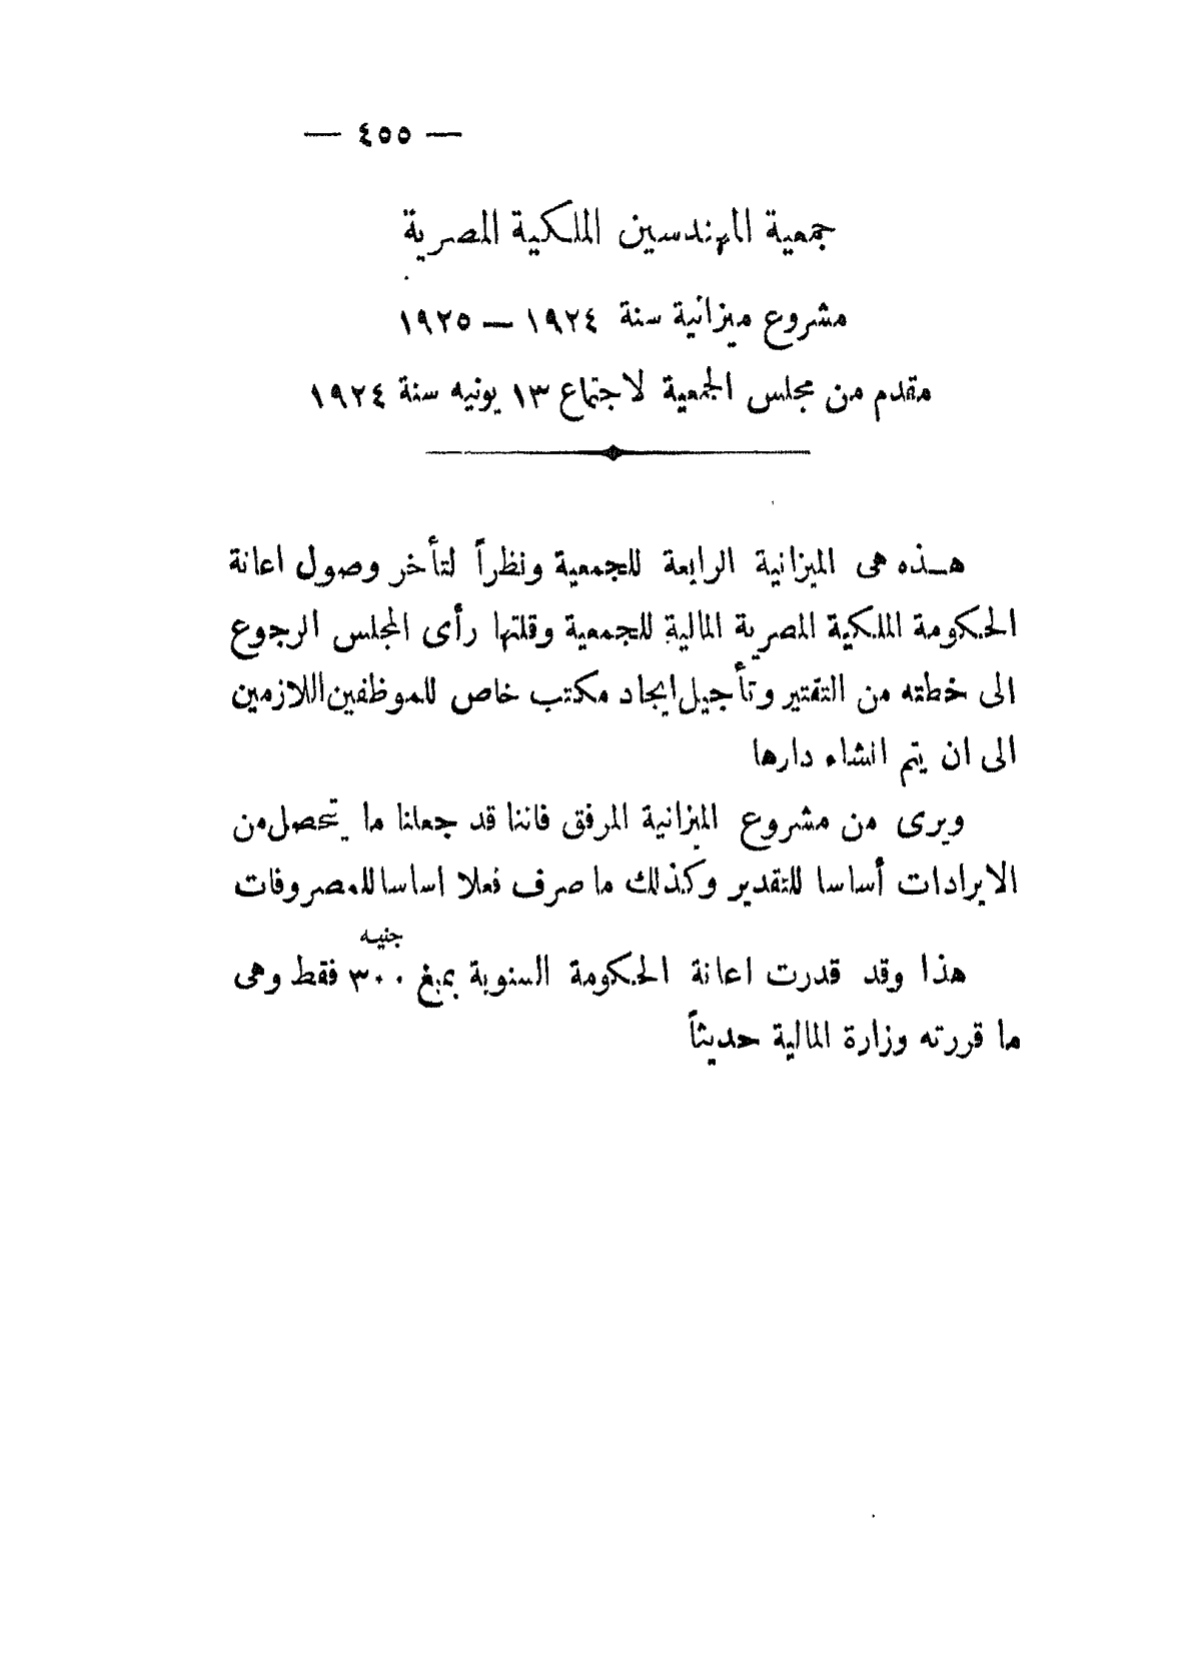 — ٤٥٥ —
جمعية المهندسين الملكية المصرية
مشروع ميزانية سنة ١٩٢٤ — ١٩٢٥
مقدم من مجلس الجمعية لاجتماع ١٣ يونيه سنة ١٩٢٤
هـذه هى الميزانية الرابعة للجمعية ونظراً لتأخر وصول اعانة
الحكومة الملكية المصرية المالية للجمعية وقلتها رأى المجلس الرجوع
الى خطته من التقتير وتأجيل ايجاد مكتب خاص للموظفين اللازمين
الى ان يتم انشاء دارها
ويرى من مشروع الميزانية المرفق فاننا قد جعلنا ما يتحصل من
الايرادات أساسا للتقدير وكذلك ما صرف فعلا اساسا للمصروفات
جنيه
هذا وقد قدرت اعانة الحكومة السنوية بمبغ ٣٠٠ فقط وهى
ما قررته وزارة المالية حديثاً